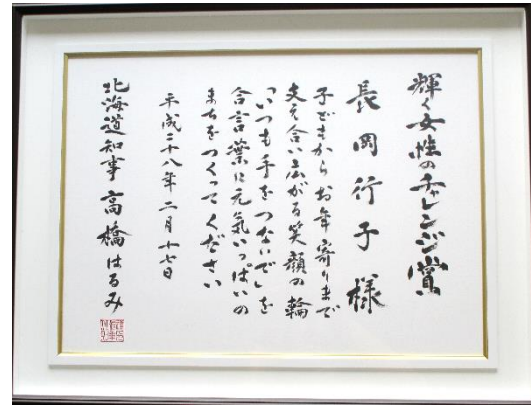 輝く女性のチャレンジ賞
長岡行子様
子どもからお年寄りまで
支え合い広がる笑顔の輪
「いつも手をつないで」を
合言葉に元気いっぱいの
まちをつくってください
平成二十八年二月十七日
北海道知事 高橋はるみ